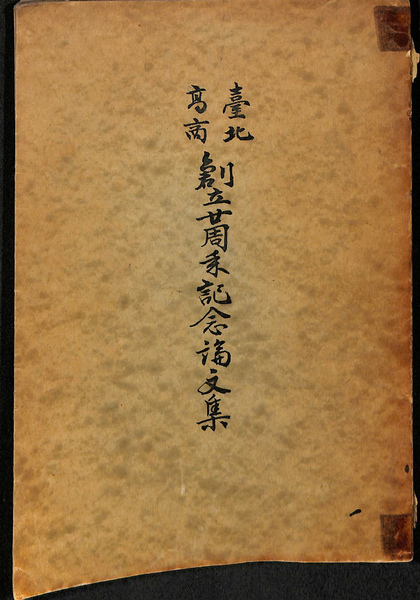 臺北
高商
創立廿周年記念論文集